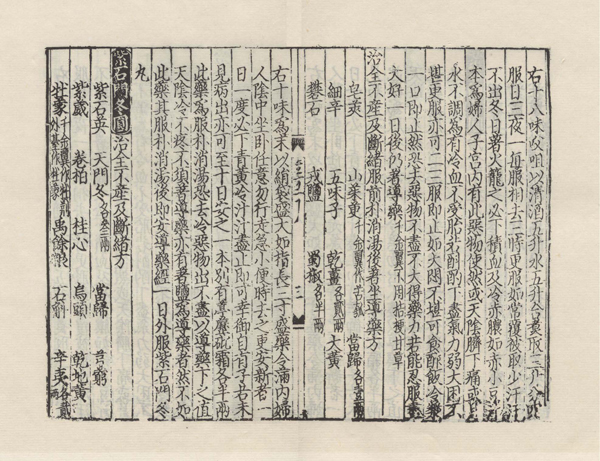 右十八味㕮咀以清酒五升水五升合煑取三升分四
服日三夜一每服相去三時更服如常覆被取少汗汗
不出冬日著火籠之必下積血及冷赤膿如赤小豆汁
本爲婦人子宮內有此惡物使然或天陰臍下痛或月
水不調爲有冷血不受胎若斟酌下盡氣力弱大困不
堪更服亦可二三服即止如大悶不堪可食酢飯冷漿
一口即止然恐去惡物不盡不大得藥力若能忍服盡
大好一日後仍着導藥千金翼不用桔梗甘草
治全不產及斷緒服前朴消湯後著坐導藥方
皂莢 山茱萸千金翼作苦瓠 當歸各壹兩
細辛 五味子 乾薑各貳兩 大黃
礬石 戎鹽 蜀椒各半兩
三
右十味爲末以絹袋盛大如指長三寸盛藥令滿內婦
人陰中坐卧任意勿行走急小便時去之更安新者一
日一度必下青黃冷汁汁盡止即可幸御自有子若未
見病出亦可至十日安之一本別有葶藶砒霜各半兩
此藥爲服朴消湯恐去冷惡物出不盡以導藥下之值
天陰冷不疼不須著導藥亦有著鹽爲導藥者然不如
此藥其服朴消湯後即安導藥經一日外服紫石門冬
丸
紫石門冬圓治全不產及斷緒方
紫石英 天門冬各叁兩 當歸 芎藭
紫葳 卷柏 桂心 烏頭 乾地黃
牡蒙千金翼作牡荊外臺作牡蒙 禹餘粮 石斛 辛夷各貳兩